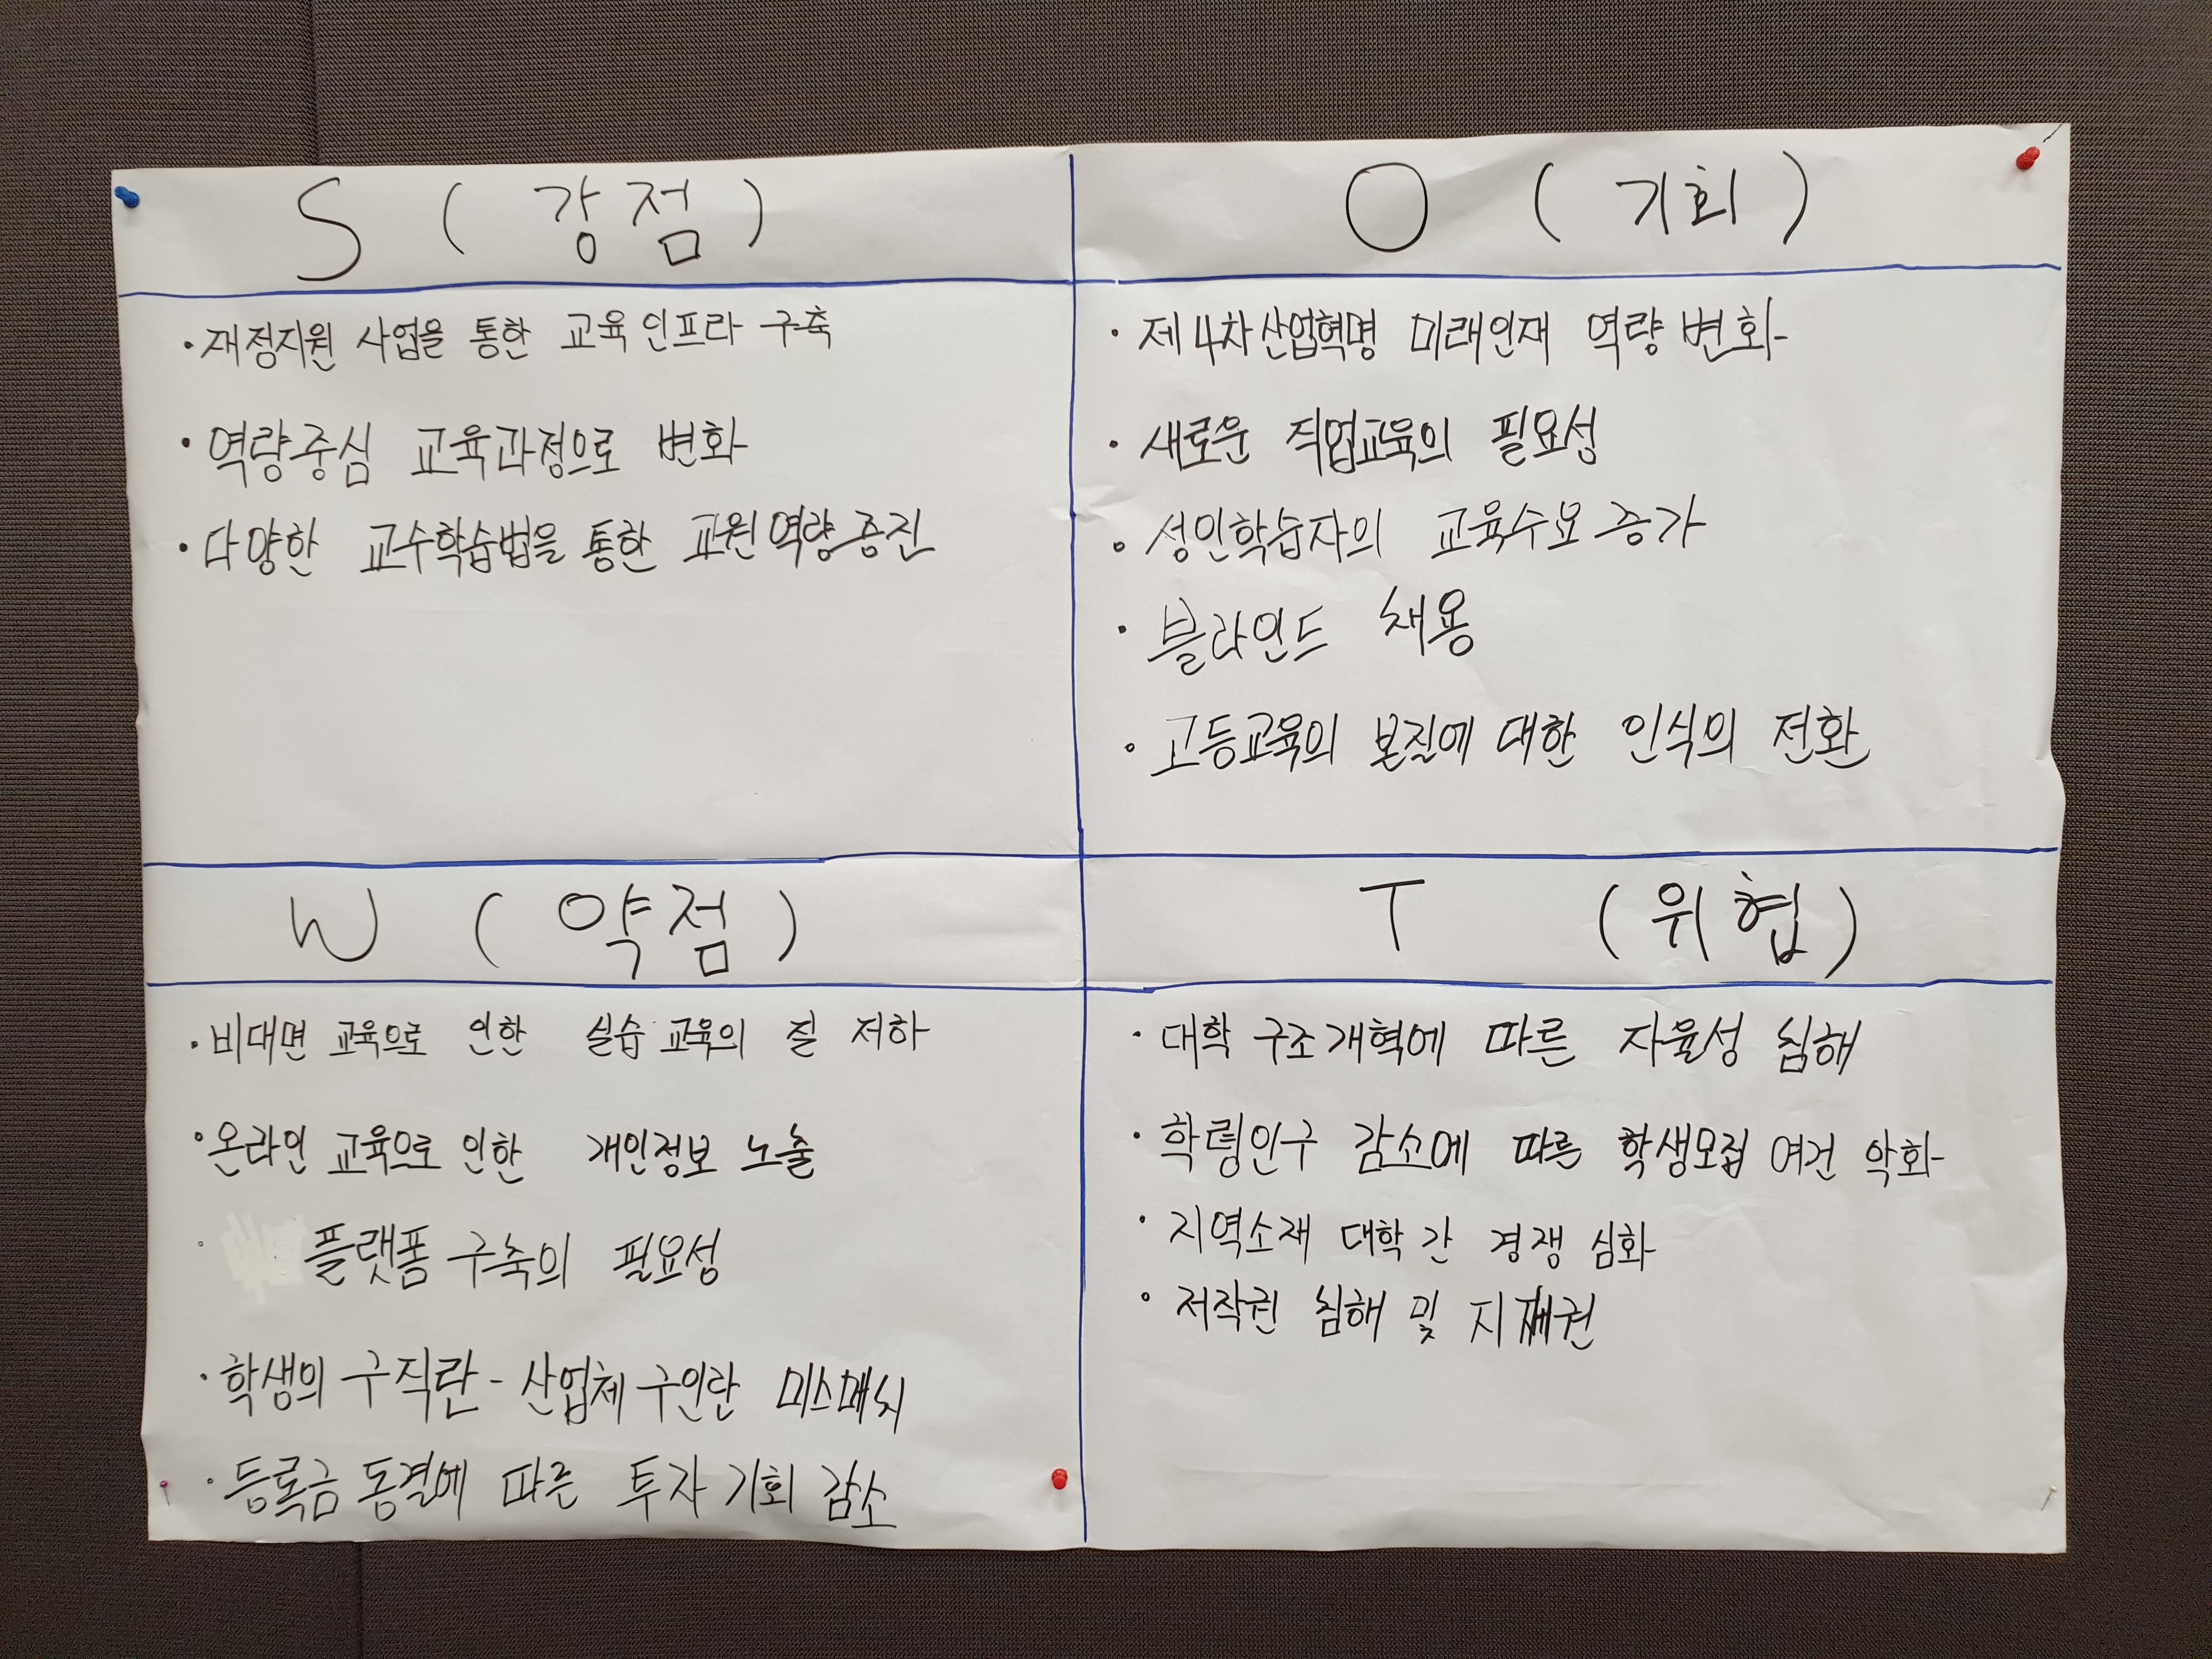 S ( 강점 )
· 재정지원 사업을 통한 교육 인프라 구축
· 역량중심 교육과정으로 변화
· 다양한 교수학습법을 통한 교원역량증진
O ( 기회 )
· 제4차산업혁명 미래인재 역량변화
· 새로운 직업교육의 필요성
· 성인학습자의 교육수요증가
· 블라인드 채용
· 고등교육의 본질에 대한 인식의 전환
W ( 약점 )
· 비대면 교육으로 인한 실습교육의 질 저하
· 온라인 교육으로 인한 개인정보 노출
· 플랫폼 구축의 필요성
· 학생의 구직란 - 산업체 구인란 미스매치
· 등록금 동결에 따른 투자 기회 감소
T ( 위협 )
· 대학 구조개혁에 따른 자율성 침해
· 학령인구 감소에 따른 학생모집 여건 악화
· 지역소재 대학 간 경쟁 심화
· 저작권 침해 및 지재권